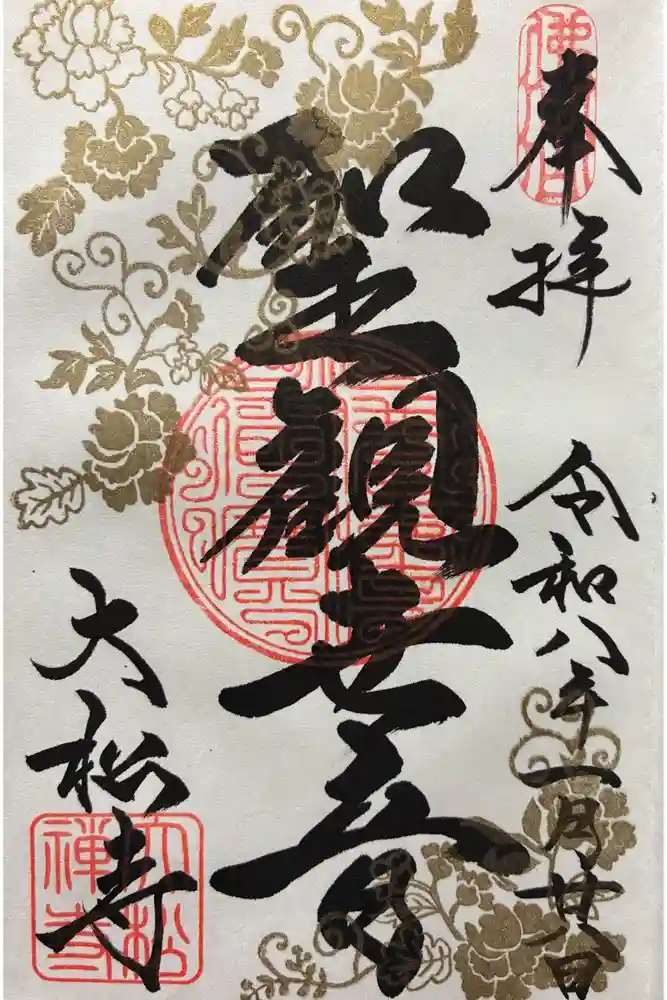 奉拝
令和八年一月廿八日
聖観世音
大松寺
大松禅寺